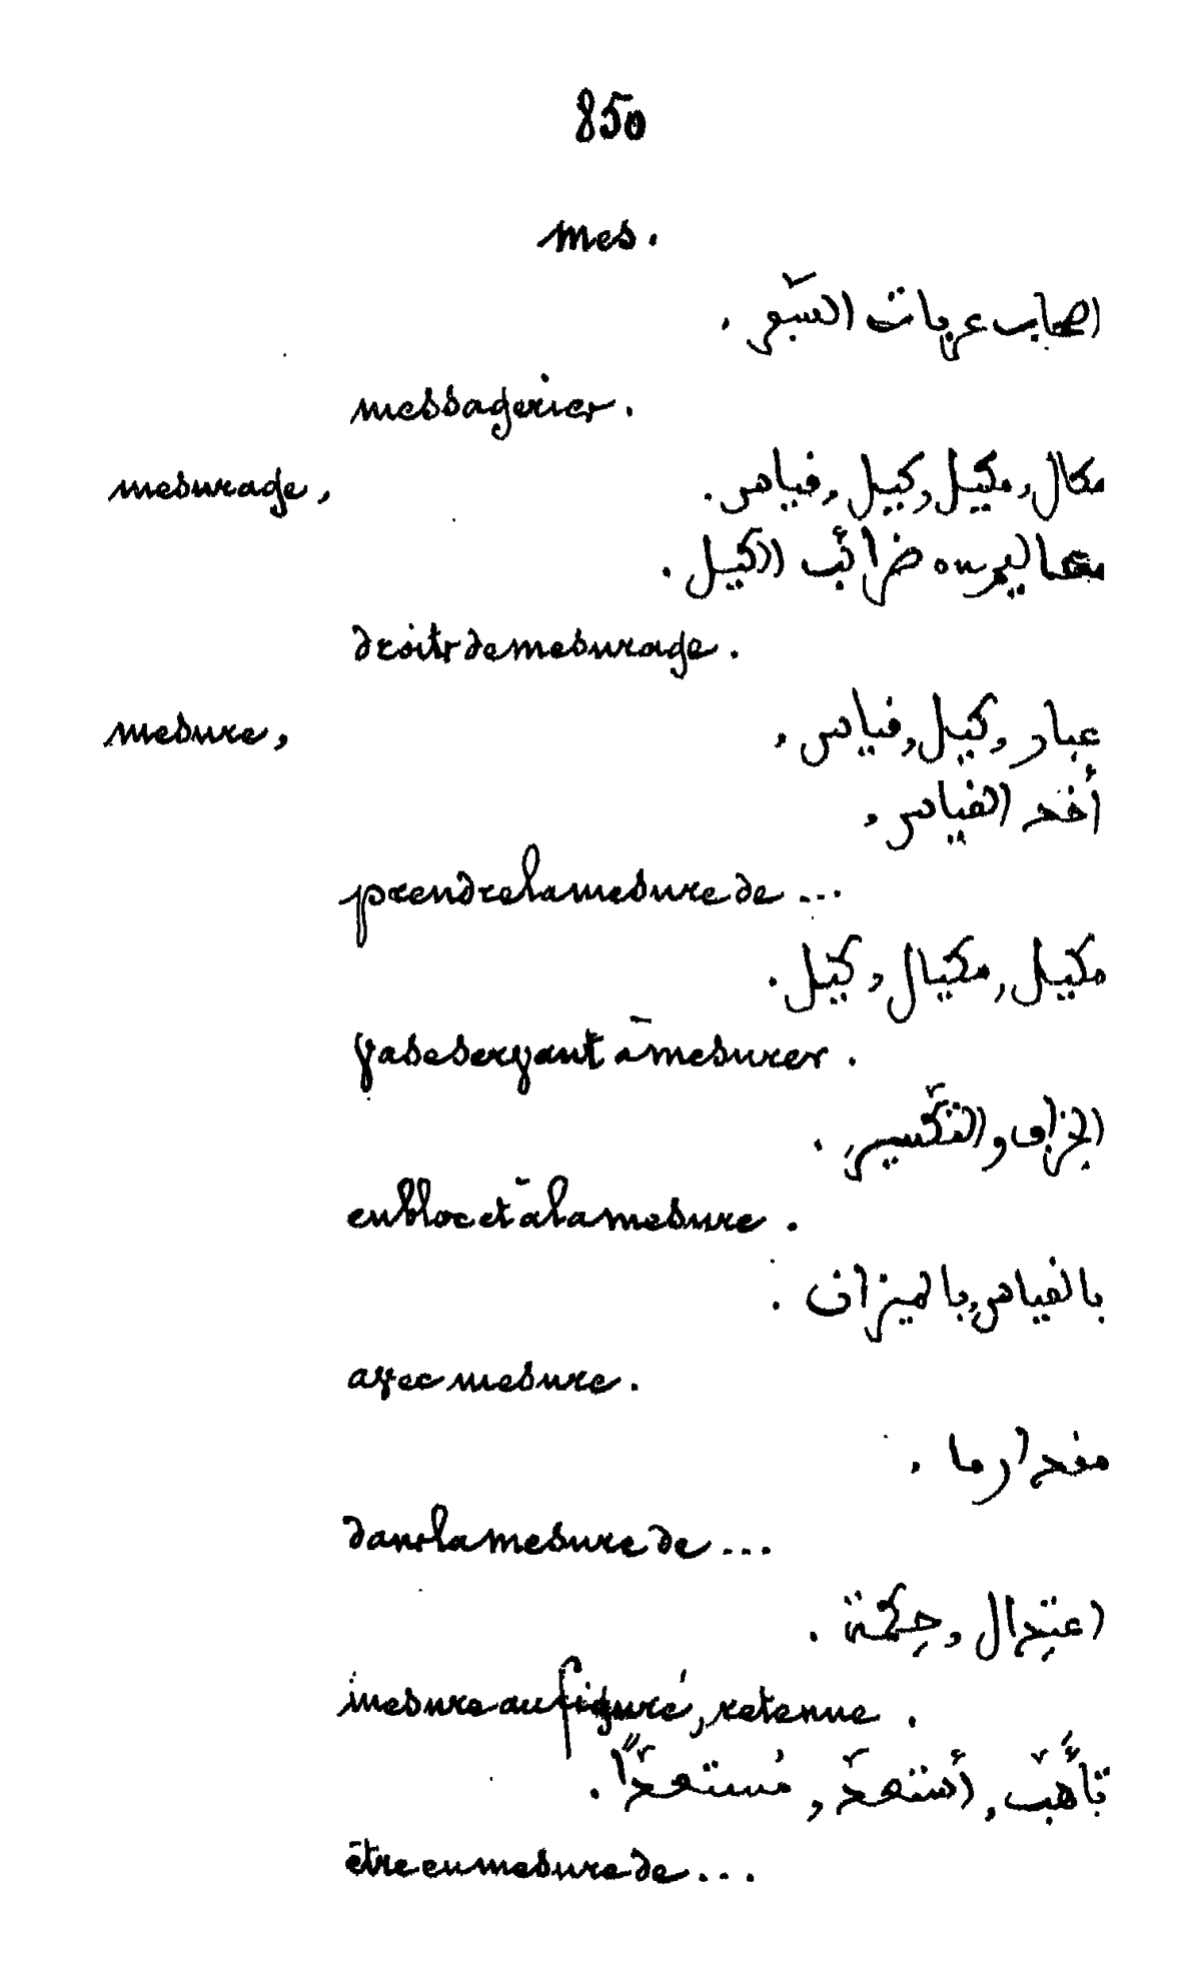 850
mes.
اصحاب عربات السّبر .
messagerier.
mesurage, مكال, مكيل, كيل, فياس.
معاليم ou ضرائب الكيل .
droits de mesurage .
mesure, عبار, كيل, فياس,
أخد الفياس,
prendre la mesure de ...
مكيل, مكيال, كيل.
vase servant à mesurer .
الجزاف والتكّسير .
en bloc et à la mesure .
بالفياس, بالميزان .
avec mesure .
مفدار ما .
dans la mesure de ...
اعتِدال, حِكمة .
mesure au figuré, retenue .
تأهّب, أستعدّ, مُستعدّاً .
être en mesure de ...